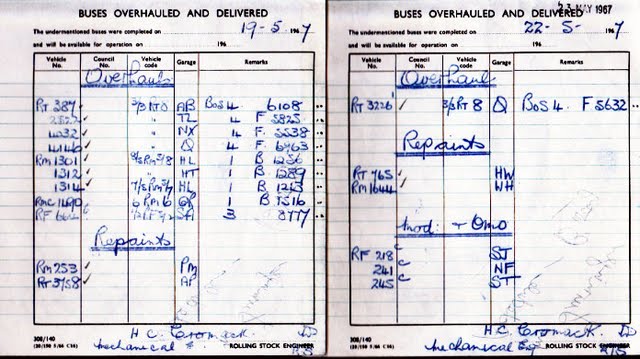 BUSES OVERHAULED AND DELIVERED
The undermentioned buses were completed on 19-5- 1967
and will be available for operation on 196
Vehicle No. Council No. Vehicle code Garage Remarks
Overhauls
RT 387 ✓ AB Bos 4 6108
2522 ✓ TL 4 F 5825
4032 ✓ NX 4 F 5538
4146 ✓ Q 4 F 6963
RM 1301 ✓ HL 1 B 1256
1312 ✓ HT 1 B 1289
1314 ✓ HL 1 B 1213
RMC 1490 6 RM 6 1 B 1516
RF 3 8777
Repaints
RM 253 ✓ PM
RT 3758 ✓ AP
H.C. Cromack.
Mechanical E. ROLLING STOCK ENGINEER
308/140
BUSES OVERHAULED AND DELIVERED
23 MAY 1967
The undermentioned buses were completed on 22-5- 1967
and will be available for operation on 196
Vehicle No. Council No. Vehicle code Garage Remarks
Overhaul
RT 3226 ✓ 3/3 RT 8 Q Bos 4. F 5632
Repaints
RT 765 ✓ HW
RM 1644 ✓ WH
Mod: + Omo
RF 218 c ST
241 c NF
245 c ST
H.C. Cromack
Mechanical Eng ROLLING STOCK ENGINEER
308/140